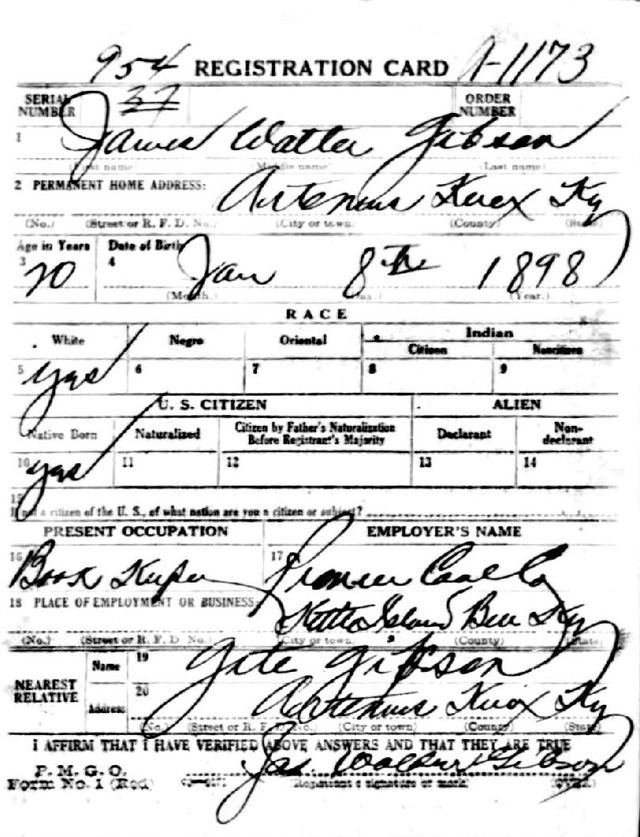 954 REGISTRATION CARD A-1173
SERIAL NUMBER 37 ORDER NUMBER
1 James Walter Gibson
(First name) (Middle name) (Last name)
2 PERMANENT HOME ADDRESS: Artemus Knox Ky
(No.) (Street or R. F. D. No.) (City or town) (County) (State)
Age in Years Date of Birth
3 20 4 Jan 8th 1898
(Month.) (Day.) (Year.)
RACE
White Negro Oriental Indian
Citizen Noncitizen
5 yes 6 7 8 9
U. S. CITIZEN ALIEN
Native Born Naturalized Citizen by Father's Naturalization Before Registrant's Majority Declarant Non-declarant
10 yes 11 12 13 14
15 If not a citizen of the U. S., of what nation are you a citizen or subject?
PRESENT OCCUPATION EMPLOYER'S NAME
16 Book Keeper 17 Pioneer Coal Co
18 PLACE OF EMPLOYMENT OR BUSINESS: Kettle Island Bell Ky
(No.) (Street or R. F. D. No.) (City or town) (County) (State)
NEAREST RELATIVE Name 19 Gibson
Address 20 Artemus Knox Ky
(No.) (Street or R. F. D. No.) (City or town) (County) (State)
I AFFIRM THAT I HAVE VERIFIED ABOVE ANSWERS AND THAT THEY ARE TRUE
P. M. G. O.
Form No. 1 (Red) Jas Walter Gibson
(Registrant's signature or mark)